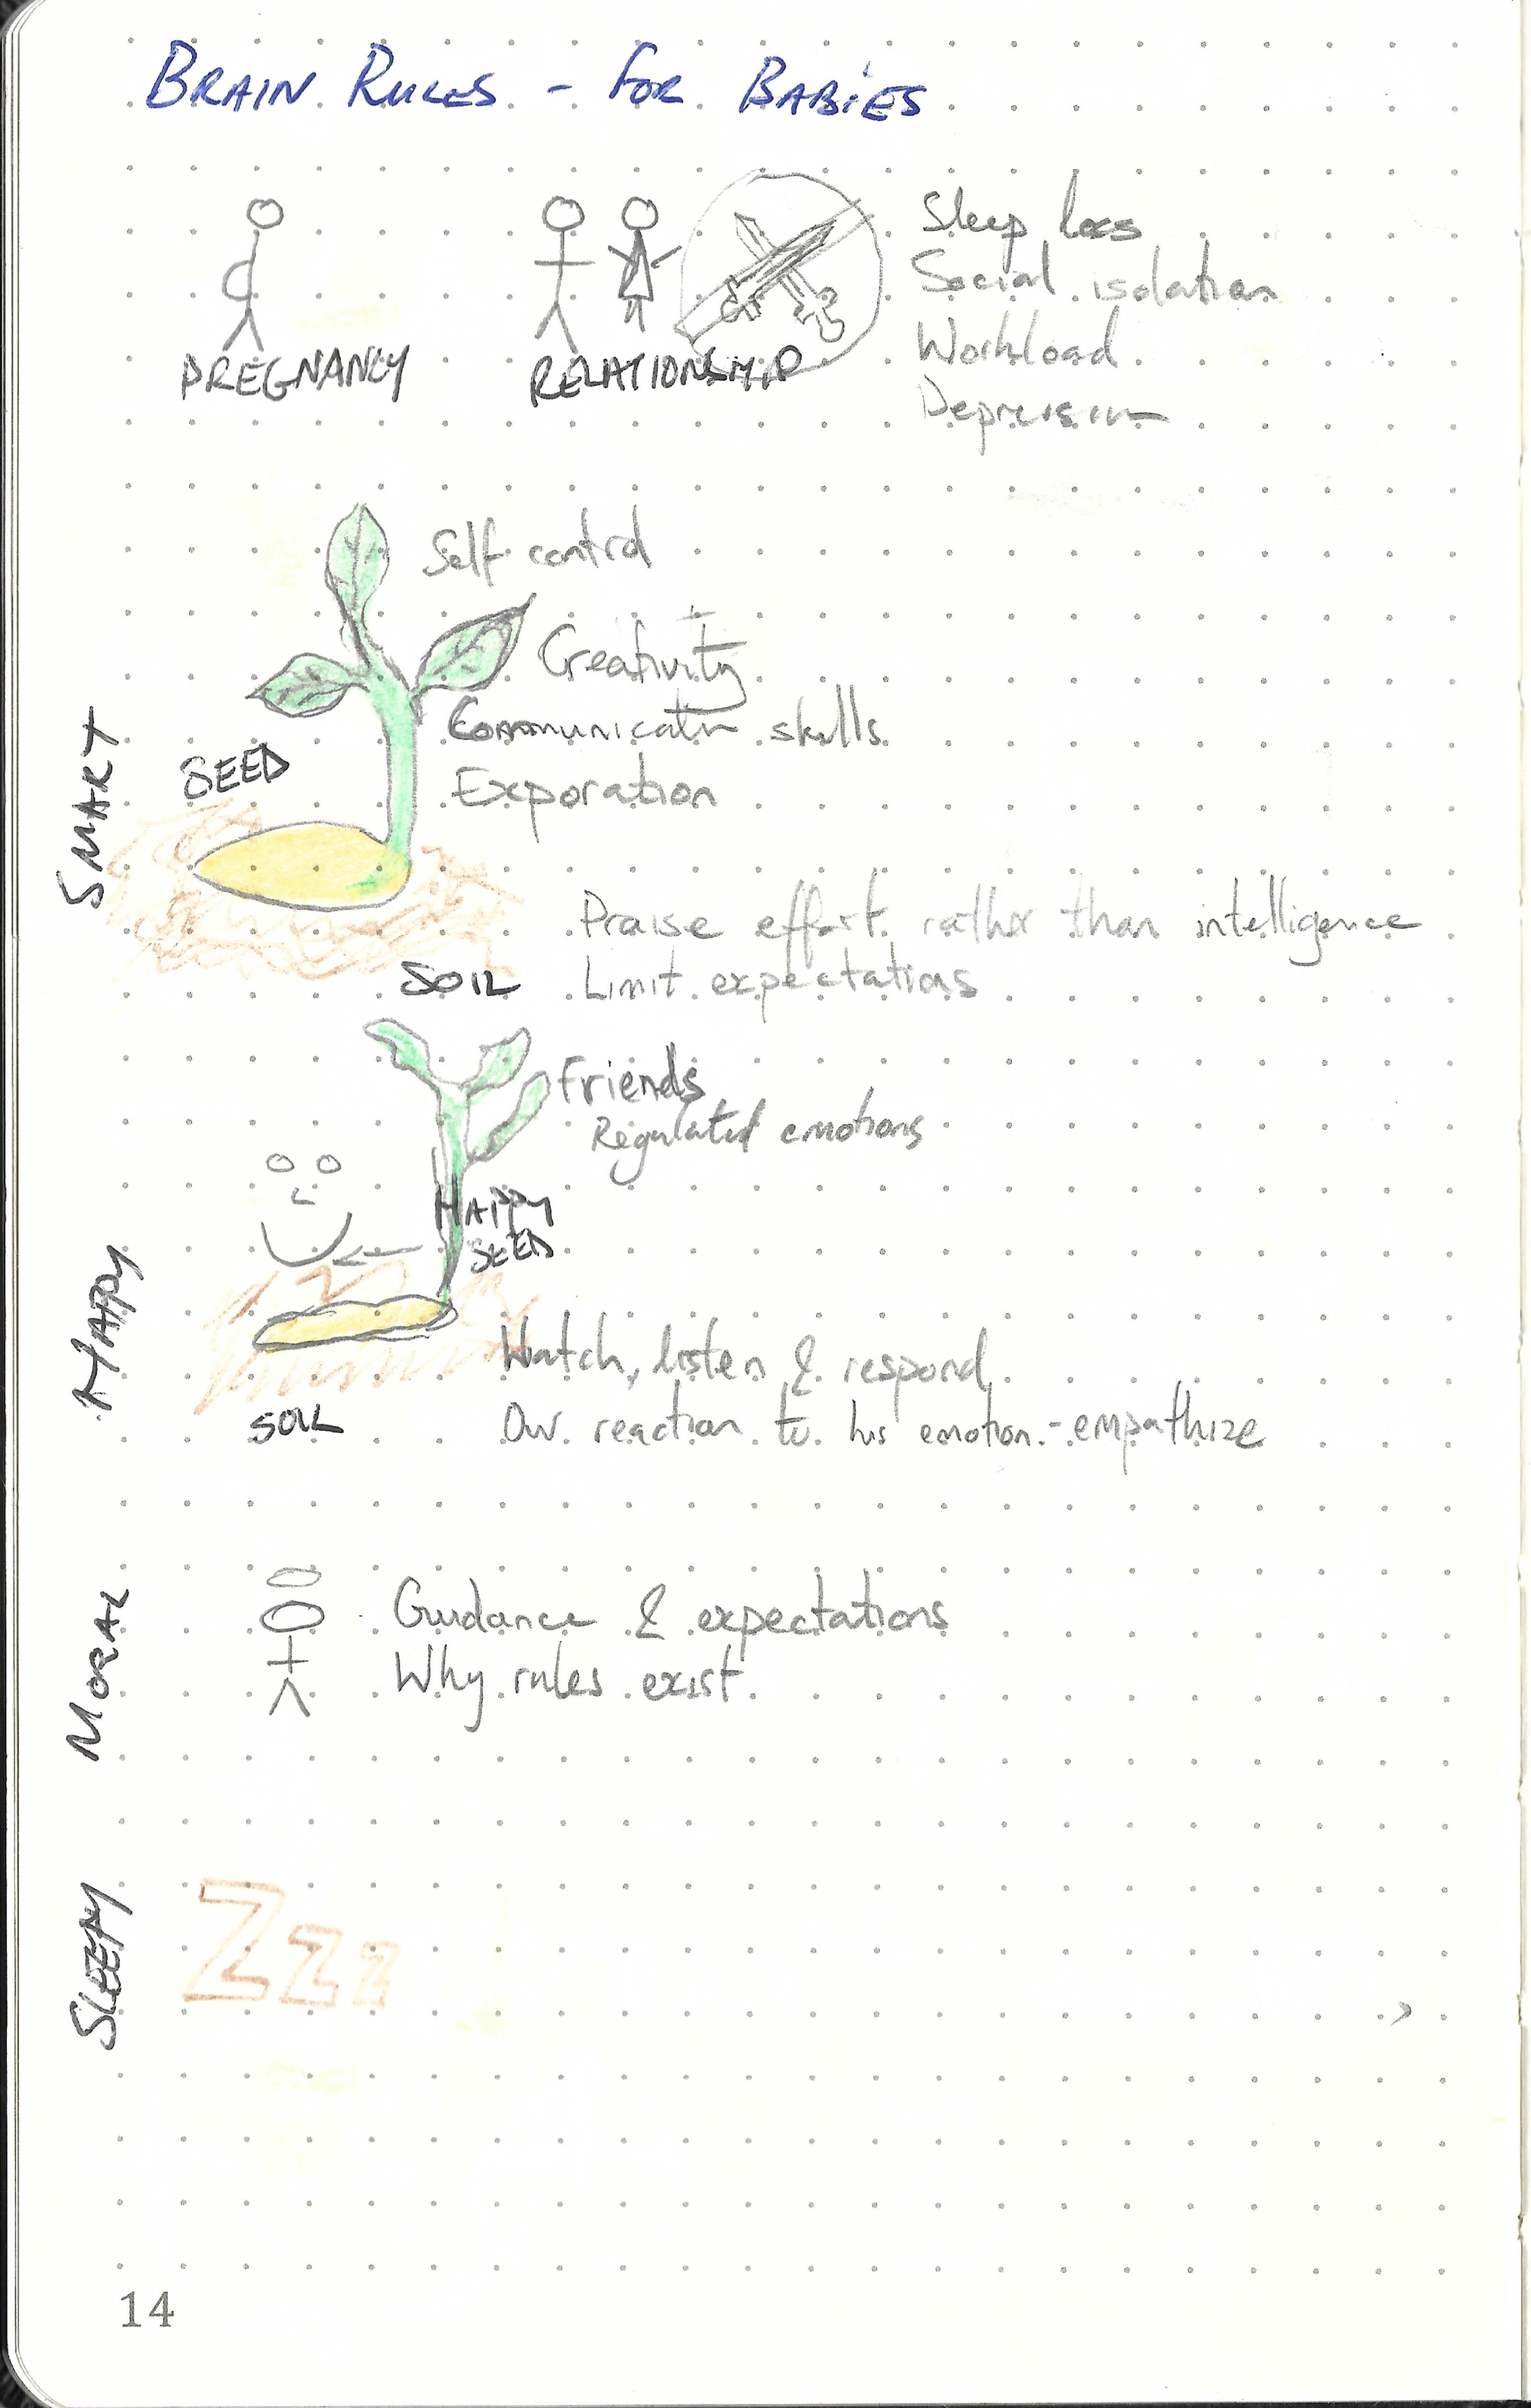 BRAIN RULES - FOR BABIES
PREGNANCY
RELATIONSHIP
Sleep loss
Social isolation
Workload
Depression
SMART
Self control
Creativity
Communicatn skills
Exporation
SEED
Praise effort rather than intelligence
SOIL
Limit expectations
HAPPY
Friends
Regulated emotions
HAPPY
SEED
Watch, listen & respond
Our reaction to his emotion - empathize
SOIL
MORAL
Guidance & expectations
Why rules exist
SLEEPY
Zzz
14